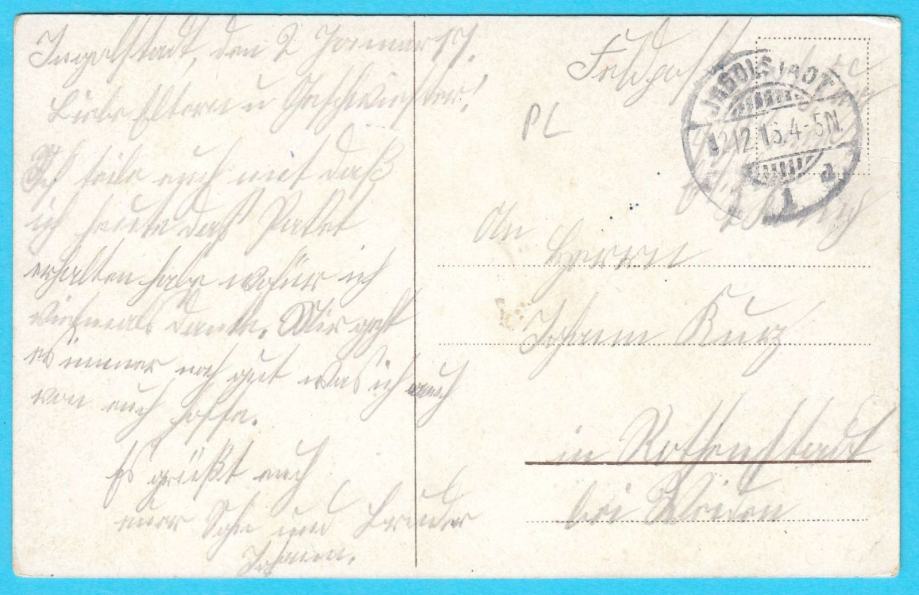 Ingolstadt, den 2 Januar 17.
Liebe Eltern u Geschwister!
Ich teile euch mit daß
ich heute das Paket
erhalten habe wofür ich
vielmals danke. Mir geht
es immer noch gut was ich auch
von euch hoffe.
Es grüßt euch
euer Sohn und Bruder
Johann.
Feldpost
PL
INGOLSTADT
12.16.4-5N.
1 a
An
Herrn
Johann Kurz
in Rothenstadt
bei Weiden